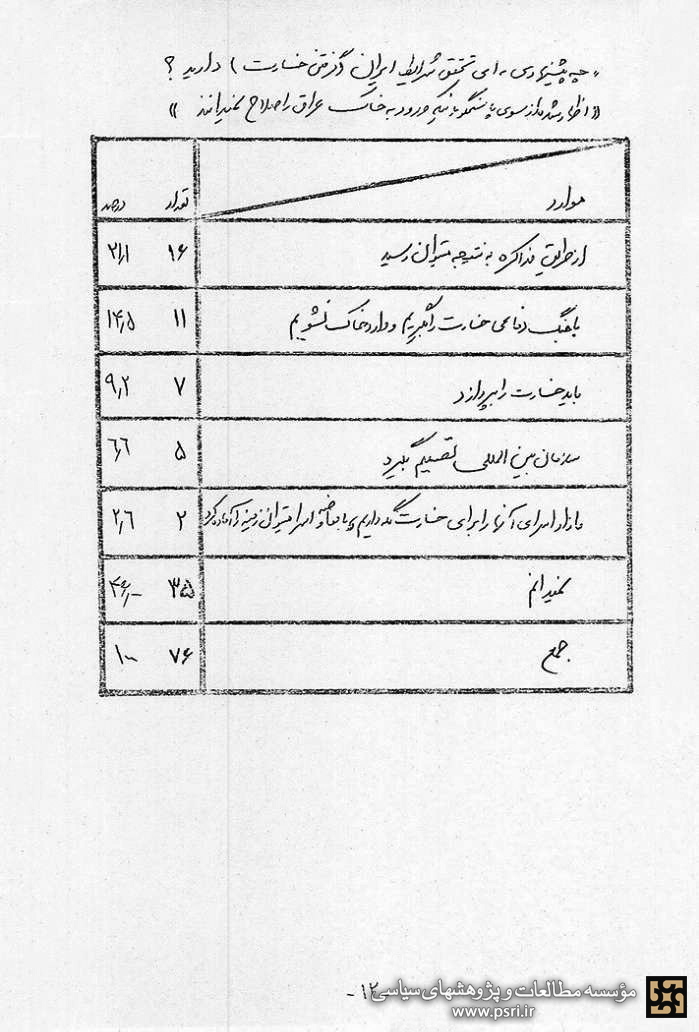 « چه پیشنهادی برای تحقق شرایط ایران (گرفتن خسارت) دارید ؟
« اظهار شده از سوی پاسخگویانیکه ورود به خاک عراق را صلاح نمیدانند »
موارد تعداد درصد
از طریق مذاکره به نتیجه میتوان رسید ۱۶ ۲۱٫۱
با جنگ دفاعی خسارت را بگیریم و وارد خاک نشویم ۱۱ ۱۴٫۵
باید خسارت را بپردازد ۷ ۹٫۲
سازمان بین المللی تصمیم بگیرد ۵ ۶٫۶
ما زاد اسرای آنها را برای خسارت نگه داریم و با معاوضه اسرا میتوان زمینه را آماده کرد ۲ ۲٫۶
نمیدانم ۳۵ ۴۶٫۰
جمع ۷۶ ۱۰۰
۱۲-
مؤسسه مطالعات و پژوهشهای سیاسی
www.psri.ir